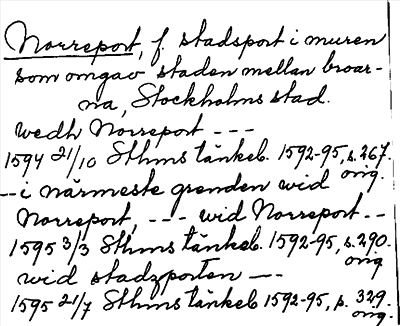 Norreport, f. stadsport i muren
som omgav staden mellan broar-
na, Stockholms stad.
wedh Norreport ---
1594 21/10 Sthms tänkeb. 1592-95, s. 267. orig.
-- i närmeste grenden wid
Norreport, --- wid Norreport --
1595 3/3 Sthms tänkeb. 1592-95, s. 290. orig
wid stadzporten ---
1595 21/7 Sthms tänkeb 1592-95, s. 329. orig.